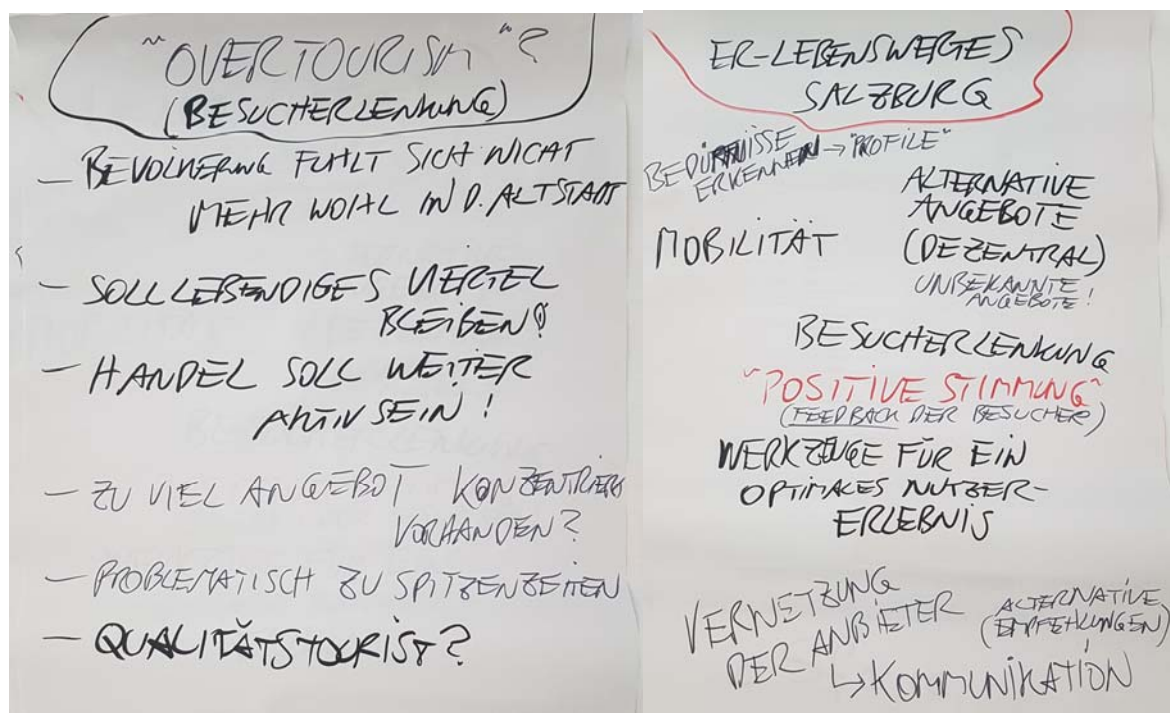 "OVERTOURISM"?
(BESUCHERLENKUNG)
- BEVÖLKERUNG FÜHLT SICH NICHT
MEHR WOHL IN D. ALTSTADT
- SOLL LEBENDIGES VIERTEL
BLEIBEN!
- HANDEL SOLL WEITER
AKTIV SEIN!
- ZU VIEL ANGEBOT KONZENTRIERT
VORHANDEN?
- PROBLEMATISCH ZU SPITZENZEITEN
- QUALITÄTSTOURIST?
ER-LEBENSWERTES
SALZBURG
BEDÜRFNISSE
ERKENNEN → "PROFILE"
ALTERNATIVE
ANGEBOTE
(DEZENTRAL)
UNBEKANNTE
ANGEBOTE!
MOBILITÄT
BESUCHERLENKUNG
"POSITIVE STIMMUNG"
(FEEDBACK DER BESUCHER)
WERKZEUGE FÜR EIN
OPTIMALES NUTZER-
ERLEBNIS
VERNETZUNG
DER ANBIETER
↳ KOMMUNIKATION
ALTERNATIVE
(EMPFEHLUNGEN)